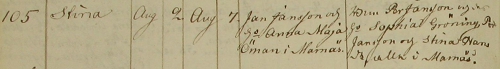 105 Stina Aug 2 Aug 7. Jan Jansson och
H:o Anna Maja
Öman i Marnäs.
Per Jansson och
H:o Sophia Gröning, Per
Jansson och Stina Hans
i Marnäs.